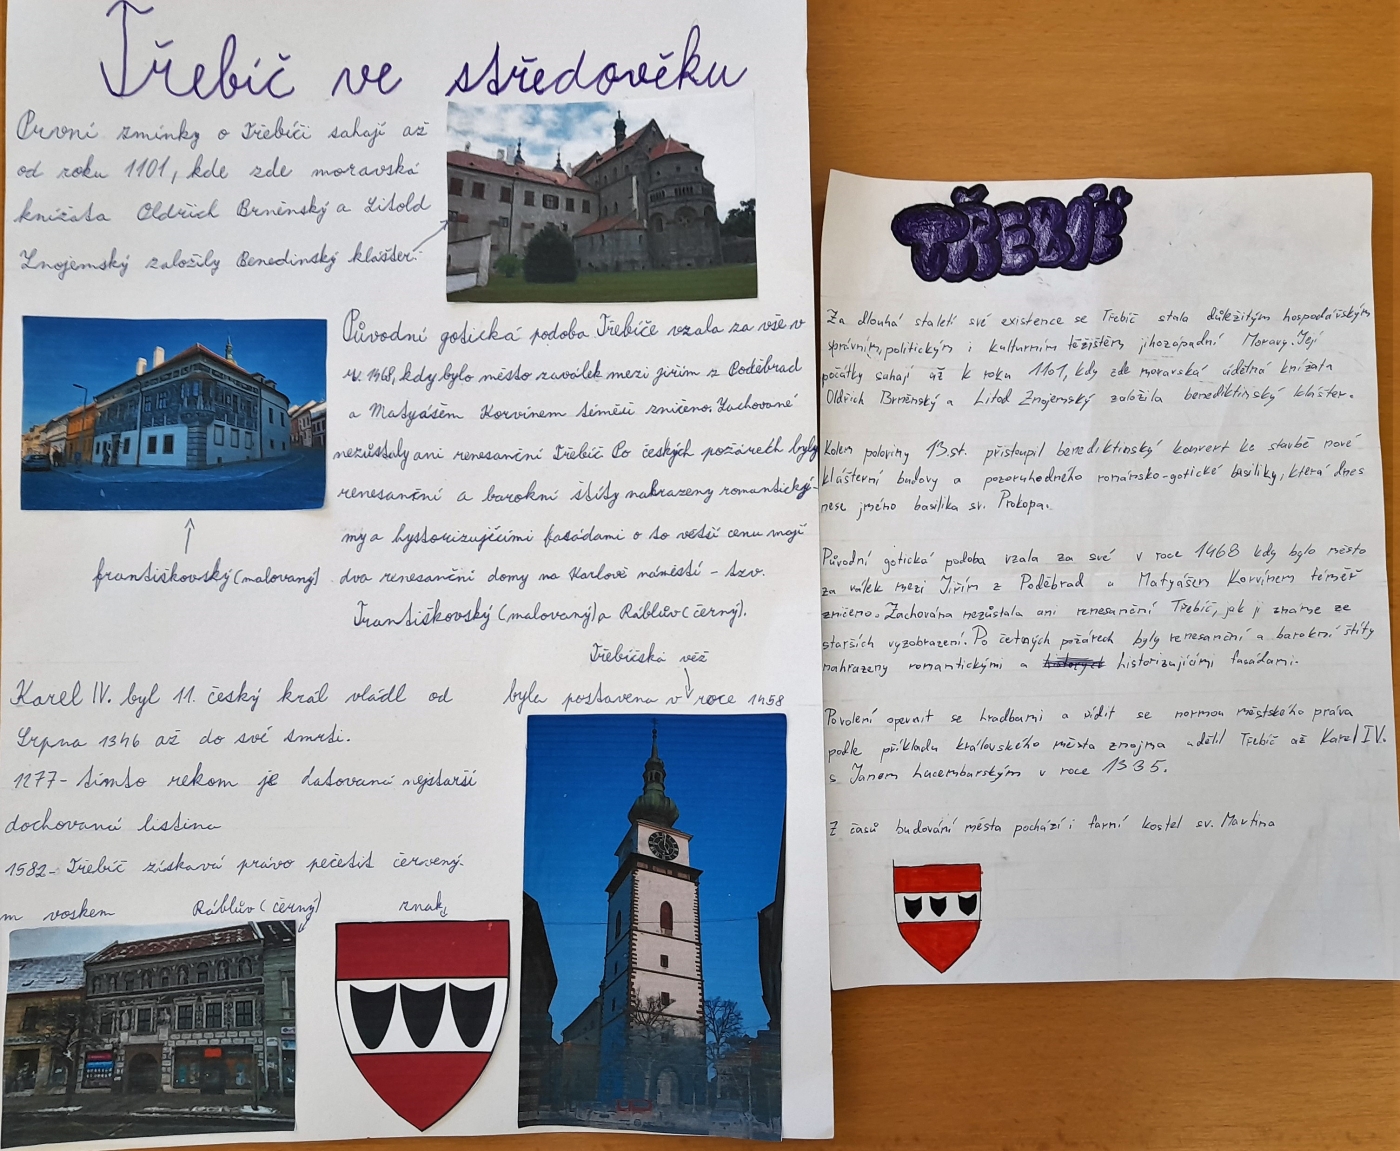 Třebíč ve středověku
První zmínky o Třebíči sahají až
od roku 1101, kde zde moravská
knížata Oldřich Brněnský a Litold
Znojemský založily Benedinský klášter.
Původní gotická podoba Třebíče vzala za vše v
r. 1468, kdy bylo město zaválek mezi jiřím z Poděbrad
a Matyášem Korvínem téměři zničeno. Zachované
nezůstaly ani renesanční Třebíč Po českých požárech byly
renesanční a barokní štíty nahrazeny romantický-
my a hystorizujícími fasádami o to větší cenu mají
dva renesanční domy na Karlově náměstí - tzv.
Františkovský (malovaný) a Ráblův (černý).
františkovský (malovaný)
Třebíčská věž
byla postavena v roce 1458
Karel IV. byl 11. český král vládl od
Srpna 1346 až do své smrti.
1277 - tímto rokem je datovaná nejstarší
dochovaná listina
1582 - Třebíč získává právo pečetit červený-
m voskem
Ráblův (černý)
znak
TŘEBÍČ
Za dlouhá staletí své existence se Třebíč stala důležitým hospodářským
správním, politickým i kulturním těžištěm jihozápadní Moravy. Její
počátky sahají až k roku 1101, kdy zde moravská údělná knížata
Oldřich Brněnský a Litod Znojemský založila benediktinský klášter.
Kolem poloviny 13.st. přistoupil benediktinský konvert ke stavbě nové
klášterní budovy a pozoruhodného románsko-gotické basiliky, která dnes
nese jméno basilika sv. Prokopa.
Původní gotická podoba vzala za své v roce 1468 kdy bylo město
za válek mezi Jiřím z Poděbrad a Matyášem Korvínem téměř
zničeno. Zachována nezůstala ani renesanční Třebíč, jak ji známe ze
starších vyzobrazení. Po četných požárech byly renesanční a barokní štíty
nahrazeny romantickými a historizujícími fasádami.
Povolení opevnit se hradbami a řídit se normou městského práva
podle příkladu královského města znojma udělil Třebíč až Karel IV.
s Janem Lucemburským v roce 1335.
Z časů budování města pochází i farní kostel sv. Martina